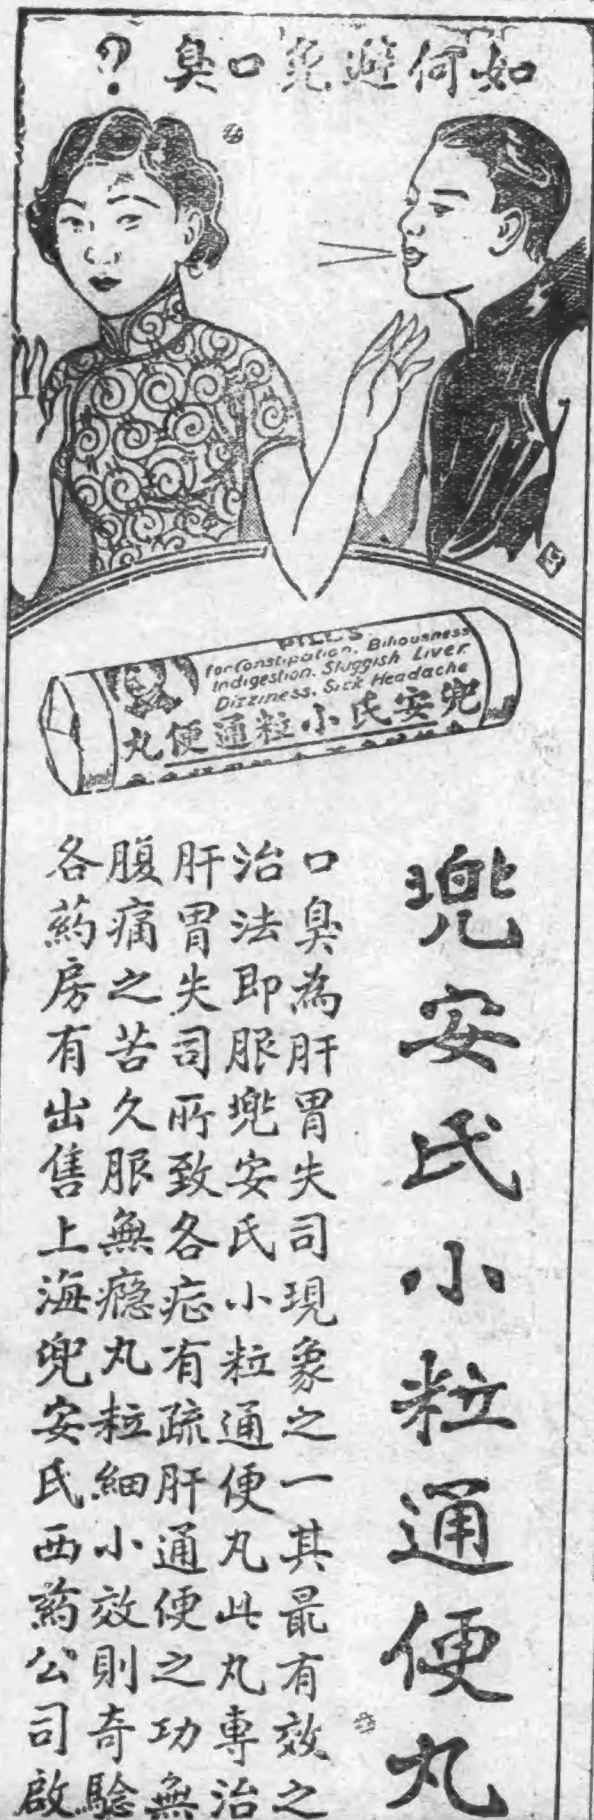 如何避免口臭？
PILLS
for Constipation, Biliousness
Indigestion, Sluggish Liver
Dizziness, Sick Headache
兜安氏小粒通便丸
兜安氏小粒通便丸
口臭為肝胃失司現象之一其最有效之
治法即服兜安氏小粒通便丸此丸專治
肝胃失司所致各症有疏肝通便之功無
腹痛之苦久服無癮丸粒細小效則奇驗
各葯房有出售上海兜安氏西葯公司啟